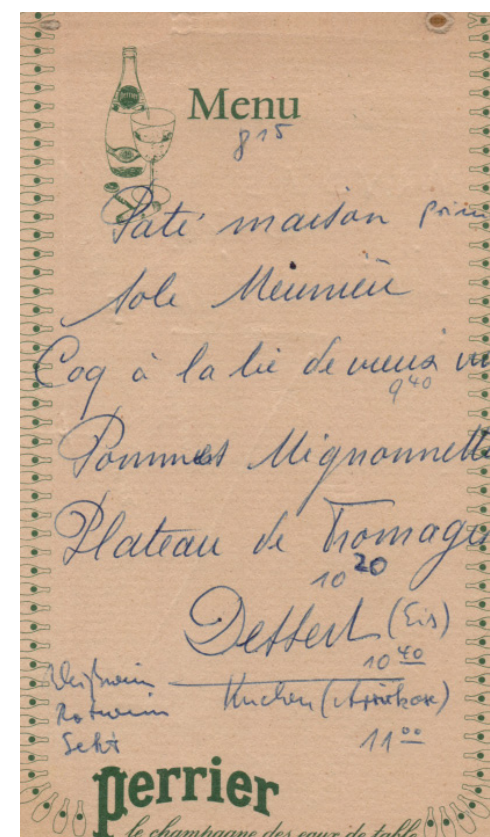 Menu
8 15
Paté maison
Sole Meunière
Coq à la lie de vieux
9 40
Pommes Mignonnett
Plateau de Fromages
10 20
Dessert (Eis)
10 40
Weißwein
Kuchen (Aprikose)
Rotwein
Sekt
11 00
perrier
le champagne des eaux de table